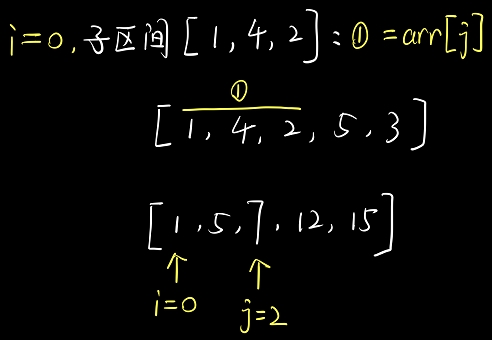 i=0，子区间[1,4,2]：① =arr[j]
①
[1,4,2,5,3]
[1,5,7,12,15]
↑ ↑
i=0 j=2